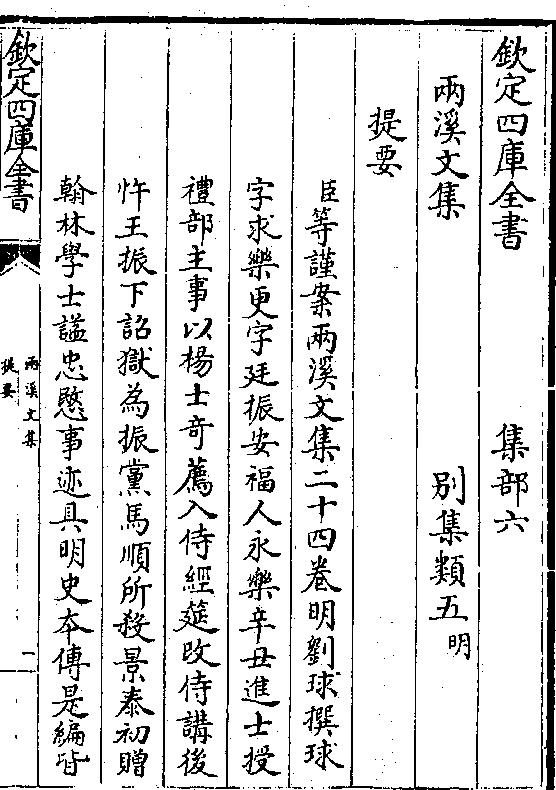 欽定四庫全書　集部六
兩溪文集　別集類五明
提要
臣等謹案兩溪文集二十四卷明劉球撰球
字求樂更字廷振安福人永樂辛丑進士授
禮部主事以楊士奇薦入侍經筵改侍講後
忤王振下詔獄為振黨馬順所殺景泰初贈
翰林學士諡忠愍事迹具明史本傳是編皆
欽定四庫全書
兩溪文集
提要
一